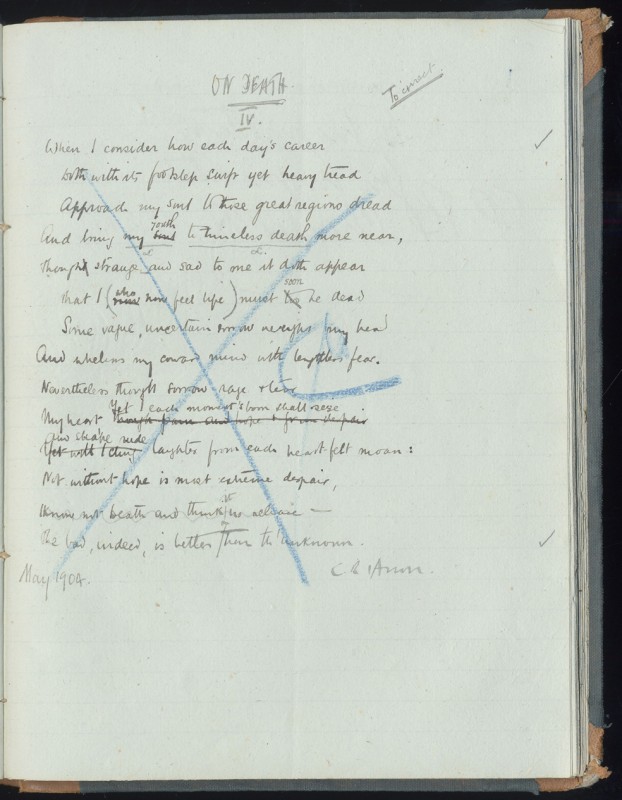 ON DEATH
To correct.
IV.
When I consider how each day's career
Doth with its footstep swift yet heavy tread
Approach my soul to those great regions dread
And bring my youth to timeless death more near,
Though strange and sad to one it doth appear
that I (who now feel life) must soon be dead
Some vague, uncertain sorrow weighs my head
And whelms my coward mind with lightless fear.
Nevertheless though sorrow rage &
My heart Yet I each moment's born shall seize
though pain and hope & from despair
And shape rude laughter from each heart felt moan:
Yet will I cling
Not without hope is most extreme despair,
I know not death and think it release —
The bad, indeed, is better than th' unknown.
May 1904.